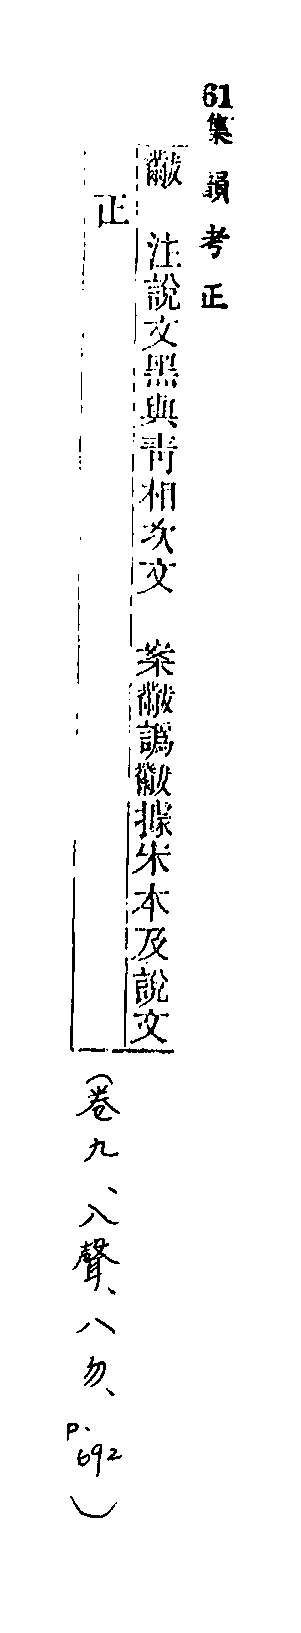 61集韻考正
黻 注說文黑與靑相次文 案黻譌黻據宋本及說文
正
(卷九、入聲、八勿、
p.692)